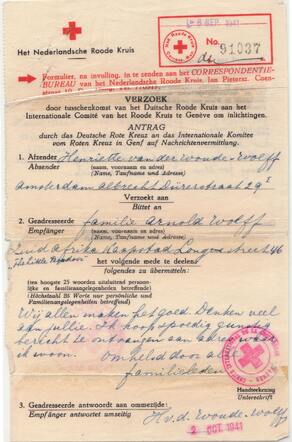 Het Nederlandsche Roode Kruis
8 SEP. 1941
No. 91037
Formulier, na invulling, in te zenden aan het CORRESPONDENTIE-
BUREAU van het Nederlandsche Roode Kruis, Jan Pietersz. Coen-
VERZOEK
door tusschenkomst van het Duitsche Roode Kruis aan het
Internationale Comité van het Roode Kruis te Genève om inlichtingen.
ANTRAG
durch das Deutsche Rote Kreuz an das Internationale Komitee
vom Roten Kreuz in Genf auf Nachrichtenvermittlung.
1. Afzender Henriette van der Woude-Wolff
Absender (naam, voornaam en adres)
(Name, Taufname und Adresse)
Amsterdam Albrecht Dürerstraat 29 I
Verzoekt aan
Bittet an
2. Geadresseerde familie Arnold Wolff
Empfänger (naam, voornamen en adres)
(Name, Taufname und Adresse)
Zuid Afrika Kaapstad Longstreet 46
"The little
het volgende mede te deelen:
folgendes zu übermitteln:
(ten hoogste 25 woorden uitsluitend persoon-
lijke en familieaangelegenheden betreffend)
(Höchstzahl 25 Worte nur persönliche und
Familienangelegenheiten betreffend)
Wij allen maken het goed. Denken veel
aan jullie. Ik hoop spoedig gunstig
bericht te ontvangen aan adres waar
ik woon.
Omhelsd door a
familieleden
Handteekening
Unterschrift
3. Geadresseerde antwoordt aan ommezijde:
Empfänger antwortet umseitig
H.v.d. Woude-Wolff
2 OCT. 1941